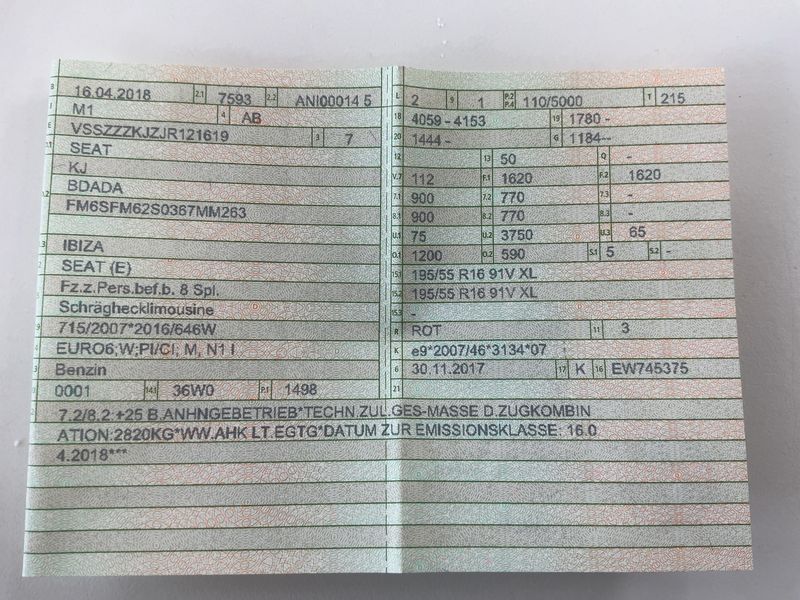 B 16.04.2018 2.1 7593 2.2 ANI00014 5
J M1 4 AB
E VSSZZZKJZJR121619 3 7
SEAT
KJ
BDADA
FM6SFM62S0367MM263
IBIZA
SEAT (E)
Fz.z.Pers.bef.b. 8 Spl.
Schräghecklimousine
715/2007*2016/646W
EURO6;W;PI/CI; M, N1 I
Benzin
0001 14.1 36W0 P.1 1498
L 2 9 1 P.2 P.4 110/5000 T 215
18 4059 - 4153 19 1780 -
20 1444 - G 1184--
12 13 50 Q -
V.7 112 F.1 1620 F.2 1620
7.1 900 7.2 770 7.3 -
8.1 900 8.2 770 8.3 -
U.1 75 U.2 3750 U.3 65
O.1 1200 O.2 590 S.1 5 S.2 -
15.1 195/55 R16 91V XL
15.2 195/55 R16 91V XL
15.3 -
R ROT 11 3
K e9*2007/46*3134*07
6 30.11.2017 17 K 16 EW745375
21
7.2/8.2:+25 B.ANHNGEBETRIEB*TECHN.ZUL.GES-MASSE D.ZUGKOMBIN
ATION:2820KG*WW.AHK LT.EGTG*DATUM ZUR EMISSIONSKLASSE: 16.0
4.2018***